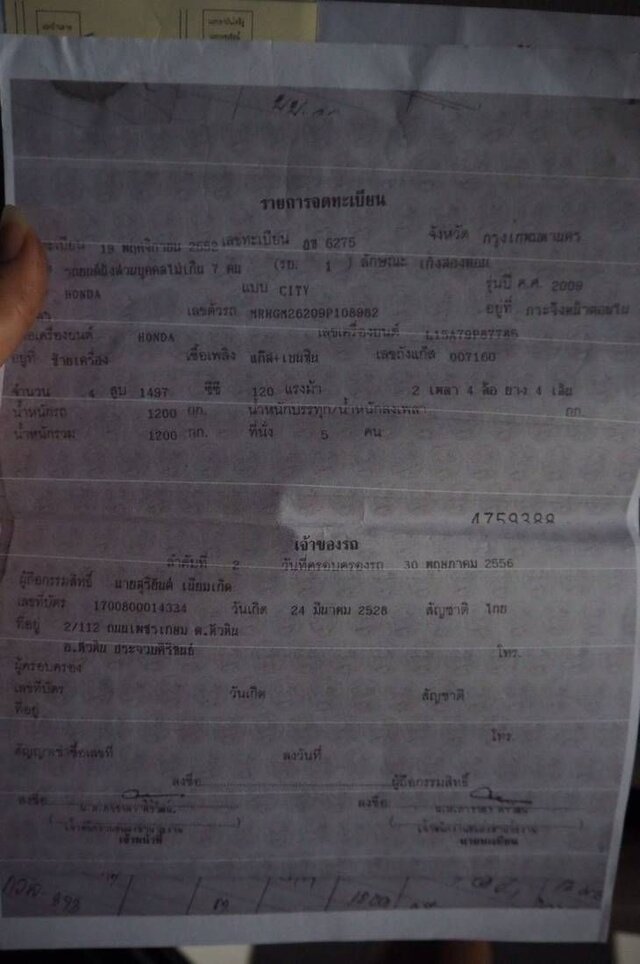 รายการจดทะเบียน
19 พฤศจิกายน 2552 เลขทะเบียน 6275 จังหวัด กรุงเทพมหานคร
รถยนต์นั่งส่วนบุคคลไม่เกิน 7 คน (รย. 1 ) ลักษณะ เก๋งสองตอน
HONDA แบบ CITY รุ่นปี ค.ศ. 2009
เลขตัวรถ MRHGM26209P108982 อยู่ที่
เครื่องยนต์ HONDA เลขเครื่องยนต์
อยู่ที่ ซ้ายเครื่อง เชื้อเพลิง แก๊ส+เบนซิน เลขถังแก๊ส 007160
จำนวน 4 สูบ 1497 ซีซี 120 แรงม้า 2 เพลา 4 ล้อ ยาง 4 เส้น
น้ำหนักรถ 1200 กก. น้ำหนักบรรทุก/น้ำหนักลงเพลา กก.
น้ำหนักรวม 1200 กก. ที่นั่ง 5 คน
4759388
เจ้าของรถ
ลำดับที่ 2 วันที่ครอบครองรถ 30 พฤษภาคม 2556
ผู้ถือกรรมสิทธิ์ นายสุริยันต์ เนียมเกิด
เลขที่บัตร 1700800014334 วันเกิด 24 มีนาคม 2528 สัญชาติ ไทย
ที่อยู่ 2/112 ถนนเพชรเกษม ต.หัวหิน
อ.หัวหิน ประจวบคีรีขันธ์ โทร.
ผู้ครอบครอง
เลขที่บัตร วันเกิด สัญชาติ
ที่อยู่
โทร.
สัญญาเช่าซื้อเลขที่ ลงวันที่
ลงชื่อ ผู้ถือกรรมสิทธิ์
ลงชื่อ ลงชื่อ
เจ้าหน้าที่ นายทะเบียน